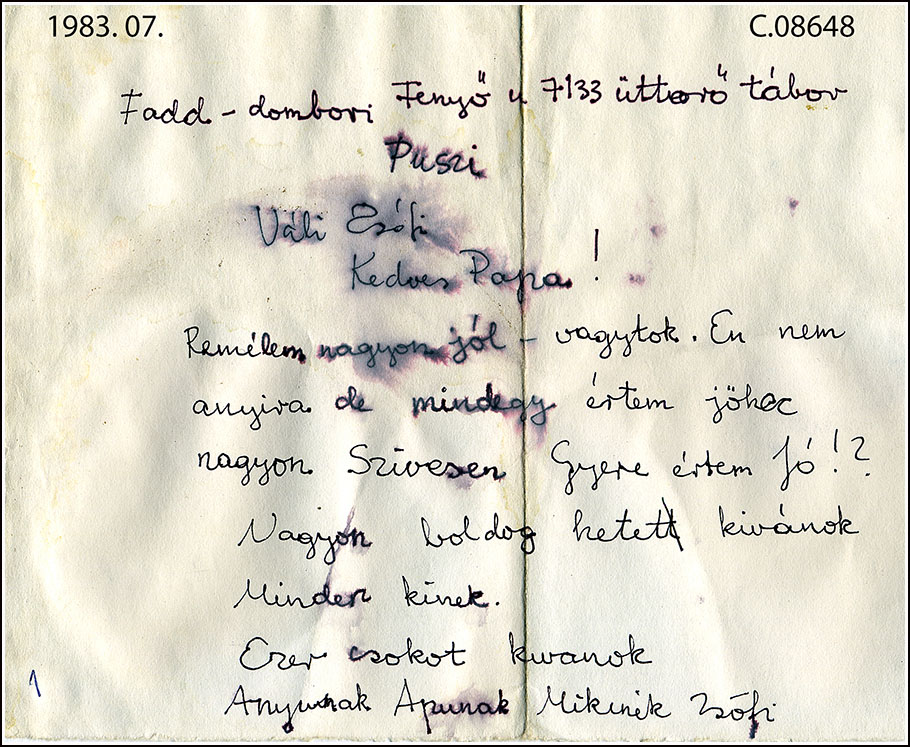 1983. 07. C.08648
Fadd - dombori Fenyő u 7133 úttorő tábor
Puszi
Váli Zsófi
Kedves Papa !
Remélem nagyon jól - vagytok. En nem
anyira de mindegy értem jöhec
nagyon Szivesen Gyere értem Jó!?
Nagyon boldog hetett kivánok
Minden kinek.
Ezer csokot kivanok
Anyunak Apunak Mikinék Zsófi
1